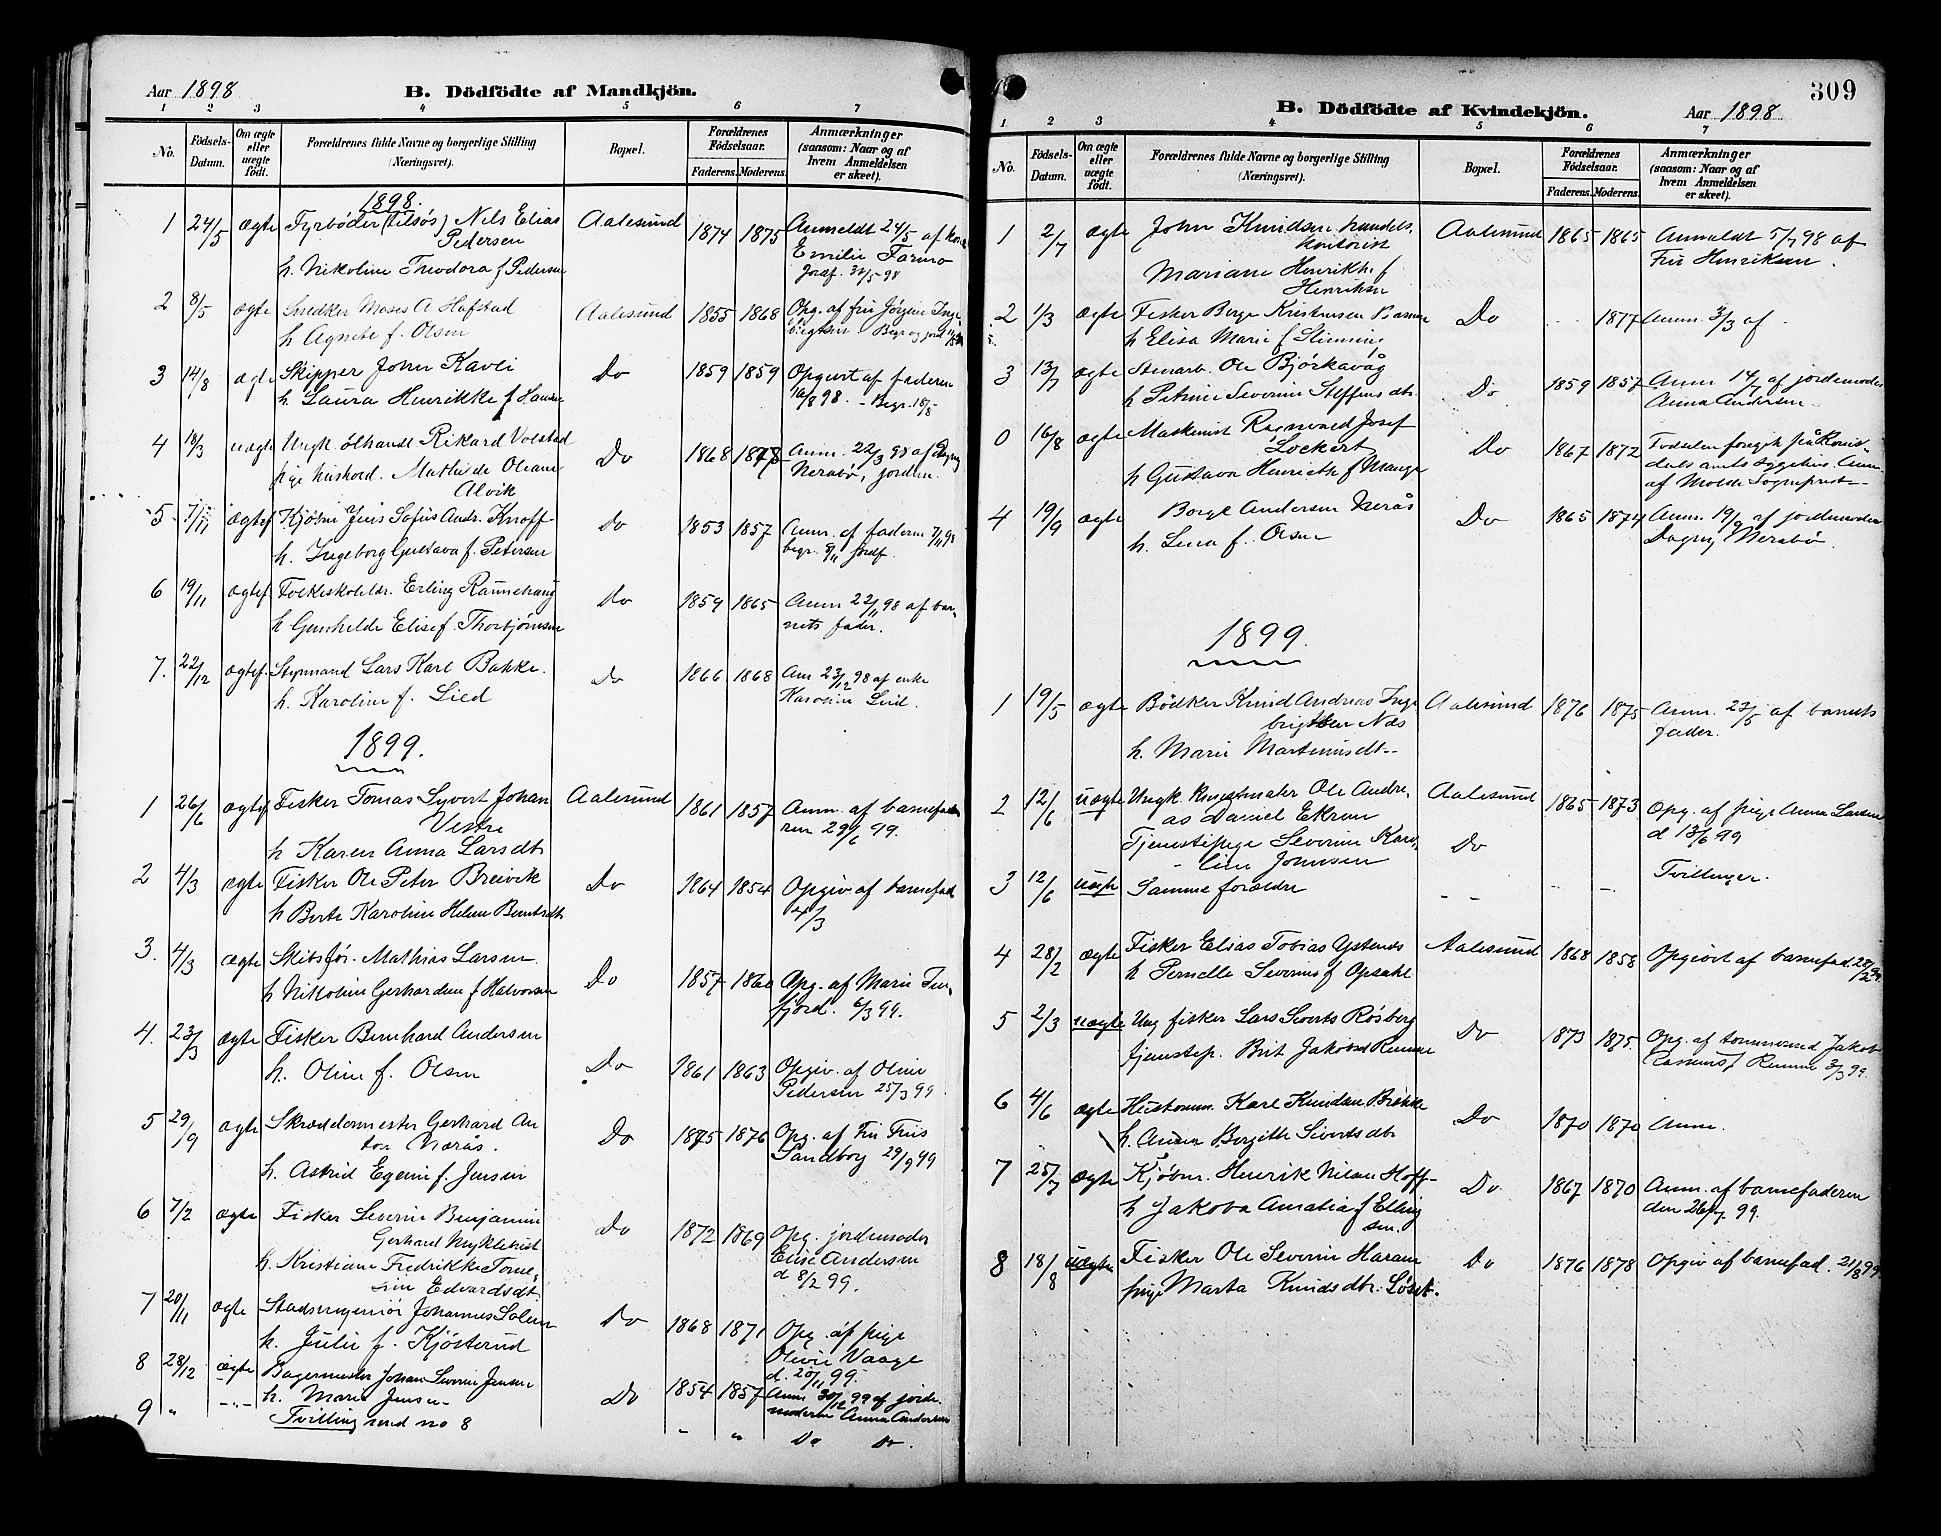 Aar 1898
B. Dödfödte af Mandkjön.
1 2 3 4 5 6 7
No.
Födsels-Datum.
Om ægte eller uægte født.
Forældrenes fulde Navne og borgerlige Stilling (Næringsvei).
Bopæl.
Forældrenes Födselsaar.
Faderens. Moderens.
Anmærkninger (saasom: Naar og af hvem Anmeldelsen er skeet).
1898.
1 24/5 ægte Fyrbøder (tilsøs) Nils Elias Aalesund 1874 1875 Anmeldt 24/5 af
Pedersen Emilie
h. Nikoline Theodora f Pedersen
2 8/5 ægte Snedker Moses A Hofstad Aalesund 1855 1868 Opg. af fru Jørgine Inge
h Agnete f. Olsen brigtsen
3 14/8 ægte Skipper John Kavli Do 1859 1859 Opgivet af faderen
h. Laura Henrikke f Hansen 16/8 98. - Begr. 18/8
4 18/3 uægte Ungk Rikard Volstad Do 1868 1878 Anm. 22/3 98 af Dagny
pige hushold. Mathilde Oleane Nerabø, jordm.
Alvik
5 7/11 ægtef Kjøbm Jens Sofus Andr. Knoff Do 1853 1857 Anm. af faderen 7/11 98
h. Ingeborg Gustava f. Petersen begr. 8/11 jordf.
6 19/11 ægtef. Folkeskoleldr. Erling Do 1859 1865 Anm 22/11 98 af bar-
h Gunhilde Elise f. Thorbjørnsen nets fader.
7. 22/12 ægtef. Styrmand Lars Karl Bakke. Do 1866 1868 Anm 23/12 98 af enke
h. Karoline f. Lied Karoline Lied.
1899.
1 26/6 ægtef Fisker Tomas Syvert Johan Aalesund 1861 1857 Anm. af barnefade
Vestre ren 29/6 99.
h Karen Anna Larsdt
2 4/3 ægte Fisker Ole Peter Breivik Do 1864 1854 Opgiv. af barnefad
h Berte Karoline Helene Berntsdt 4/3
3. 4/3 ægte Skibsfør. Mathias Larsen Do 1857 1860 Opg. af Marie
h Nikoline Gerhardine f Halvorsen fjord. 6/3 99.
4. 23/3 ægte Fisker Bernhard Andersen Do 1861 1863 Opgiv. af Oline
h. Oline f. Olsen Pedersen 25/3 99
5 29/9 ægte Skræddermester Gerhard An Do 1875 1876 Opg. af Fru Friis
ton Nærås. Sandborg 29/9 99
h. Astrid Egenie f. Jensen
6 7/2 ægte Fisker Severin Benjamin Do 1872 1869 Opg. jordemoder
Gerhard Myklebust Elise Andersen
h. Kristiane Fredrikke Tome- d 8/2 99.
rine Edvardsdt.
7 20/11 ægte Stadsingeniør Johannes Solem Do 1868 1871 Opg. af pige
h. Julie f. Kjølterud Olivie Vaage
d. 20/11 99.
8 28/12 ægte Bagermester Johan Severin Jensen Do 1854 1857 Anm. 30/12 99 af jorde-
h. Marie Jensen moderen Anna Andersen
9 " -"- Tvilling med no 8 " " Do Do.
309
B. Dödfödte af Kvindekjön.
Aar 1898
1 2 3 4 5 6 7
No.
Födsels-Datum.
Om ægte eller uægte födt.
Forældrenes fulde Navne og borgerlige Stilling (Næringsvei).
Bopæl.
Forældrenes Födselsaar.
Faderens. Moderens.
Anmærkninger (saasom: Naar og af hvem Anmeldelsen er skeet).
1 2/7 ægte John Knudsen handels Aalesund 1865 1865 Anmeldt 5/7 98 af
kontorist Fru Henriksen.
Mariane Henrikke f
Henriksen
2 1/3 ægte Fisker Berge Kristensen Do - - 1877 Anm. 3/3 af -
h Elisa Marie f
3 13/7 ægte Stenarb. Ole Bjørkavåg Do 1859 1857 Anm 14/7 af jordemoder
h Petrine Severine Steffensdtr. Anna Andersen
0 16/8 ægte Maskinist Ragnvald Josef Do 1867 1872 Fødselen foregik på Roms
Lockert dals amts sygehus. Anm.
h Gustava Henriette f Mange af Molde Sogneprest
4 19/9 ægte Borge Andersen Nerås Do 1865 1874 Anm. 19/9 af jordemoder
h. Lina f. Olsen Dagny Nerabø.
1899.
1 19/5 ægte Bødker Knud Andreas Inge Aalesund 1876 1875 Anm. 23/5 af barnets
brigtsen Næs fader.
h. Marie Martinusdt.
2 12/6 uægte Ungk. Kunstmaler Ole Andre- Aalesund 1865 1873 Opg. af pige Anna Larsen
as Daniel Ekrem d 13/6 99
Tjenestepige Severine Karo- Do
line Jonnsen
3 12/6 uægte Samme forældre - - - - Tvillinger.
4 28/2 ægte Fisker Elias Tobias Ystenes Aalesund 1868 1858 Opgivet af barnefad. 28/2 99.
h Pernelle Severine f Opsahl
5 2/3 uægte Ung fisker Lars Siverts Røsberg Do 1873 1875. Opg. af tømmermand Jakob
tjenestep. Brit Jakobsd Remme Rasmus f Remme 3/3 99.
6 4/6 ægte Hustømm. Karl Knudsen Brekke Do 1870 1870 Anm.
h. Anna Bergitte Sivertsdt
7 25/7 ægte Kjøbm. Henrik Nilsen Hoff Do 1867 1870 Anm. af barnefaderen
h Jakoba Amalia f Elling den 26/7. 99.
sen.
8 18/8 uægte Fisker Ole Severin Haram Do 1876 1878 Opgiv af barnefad. 21/8 99.
pige Marta Knudsdtr. Løset.